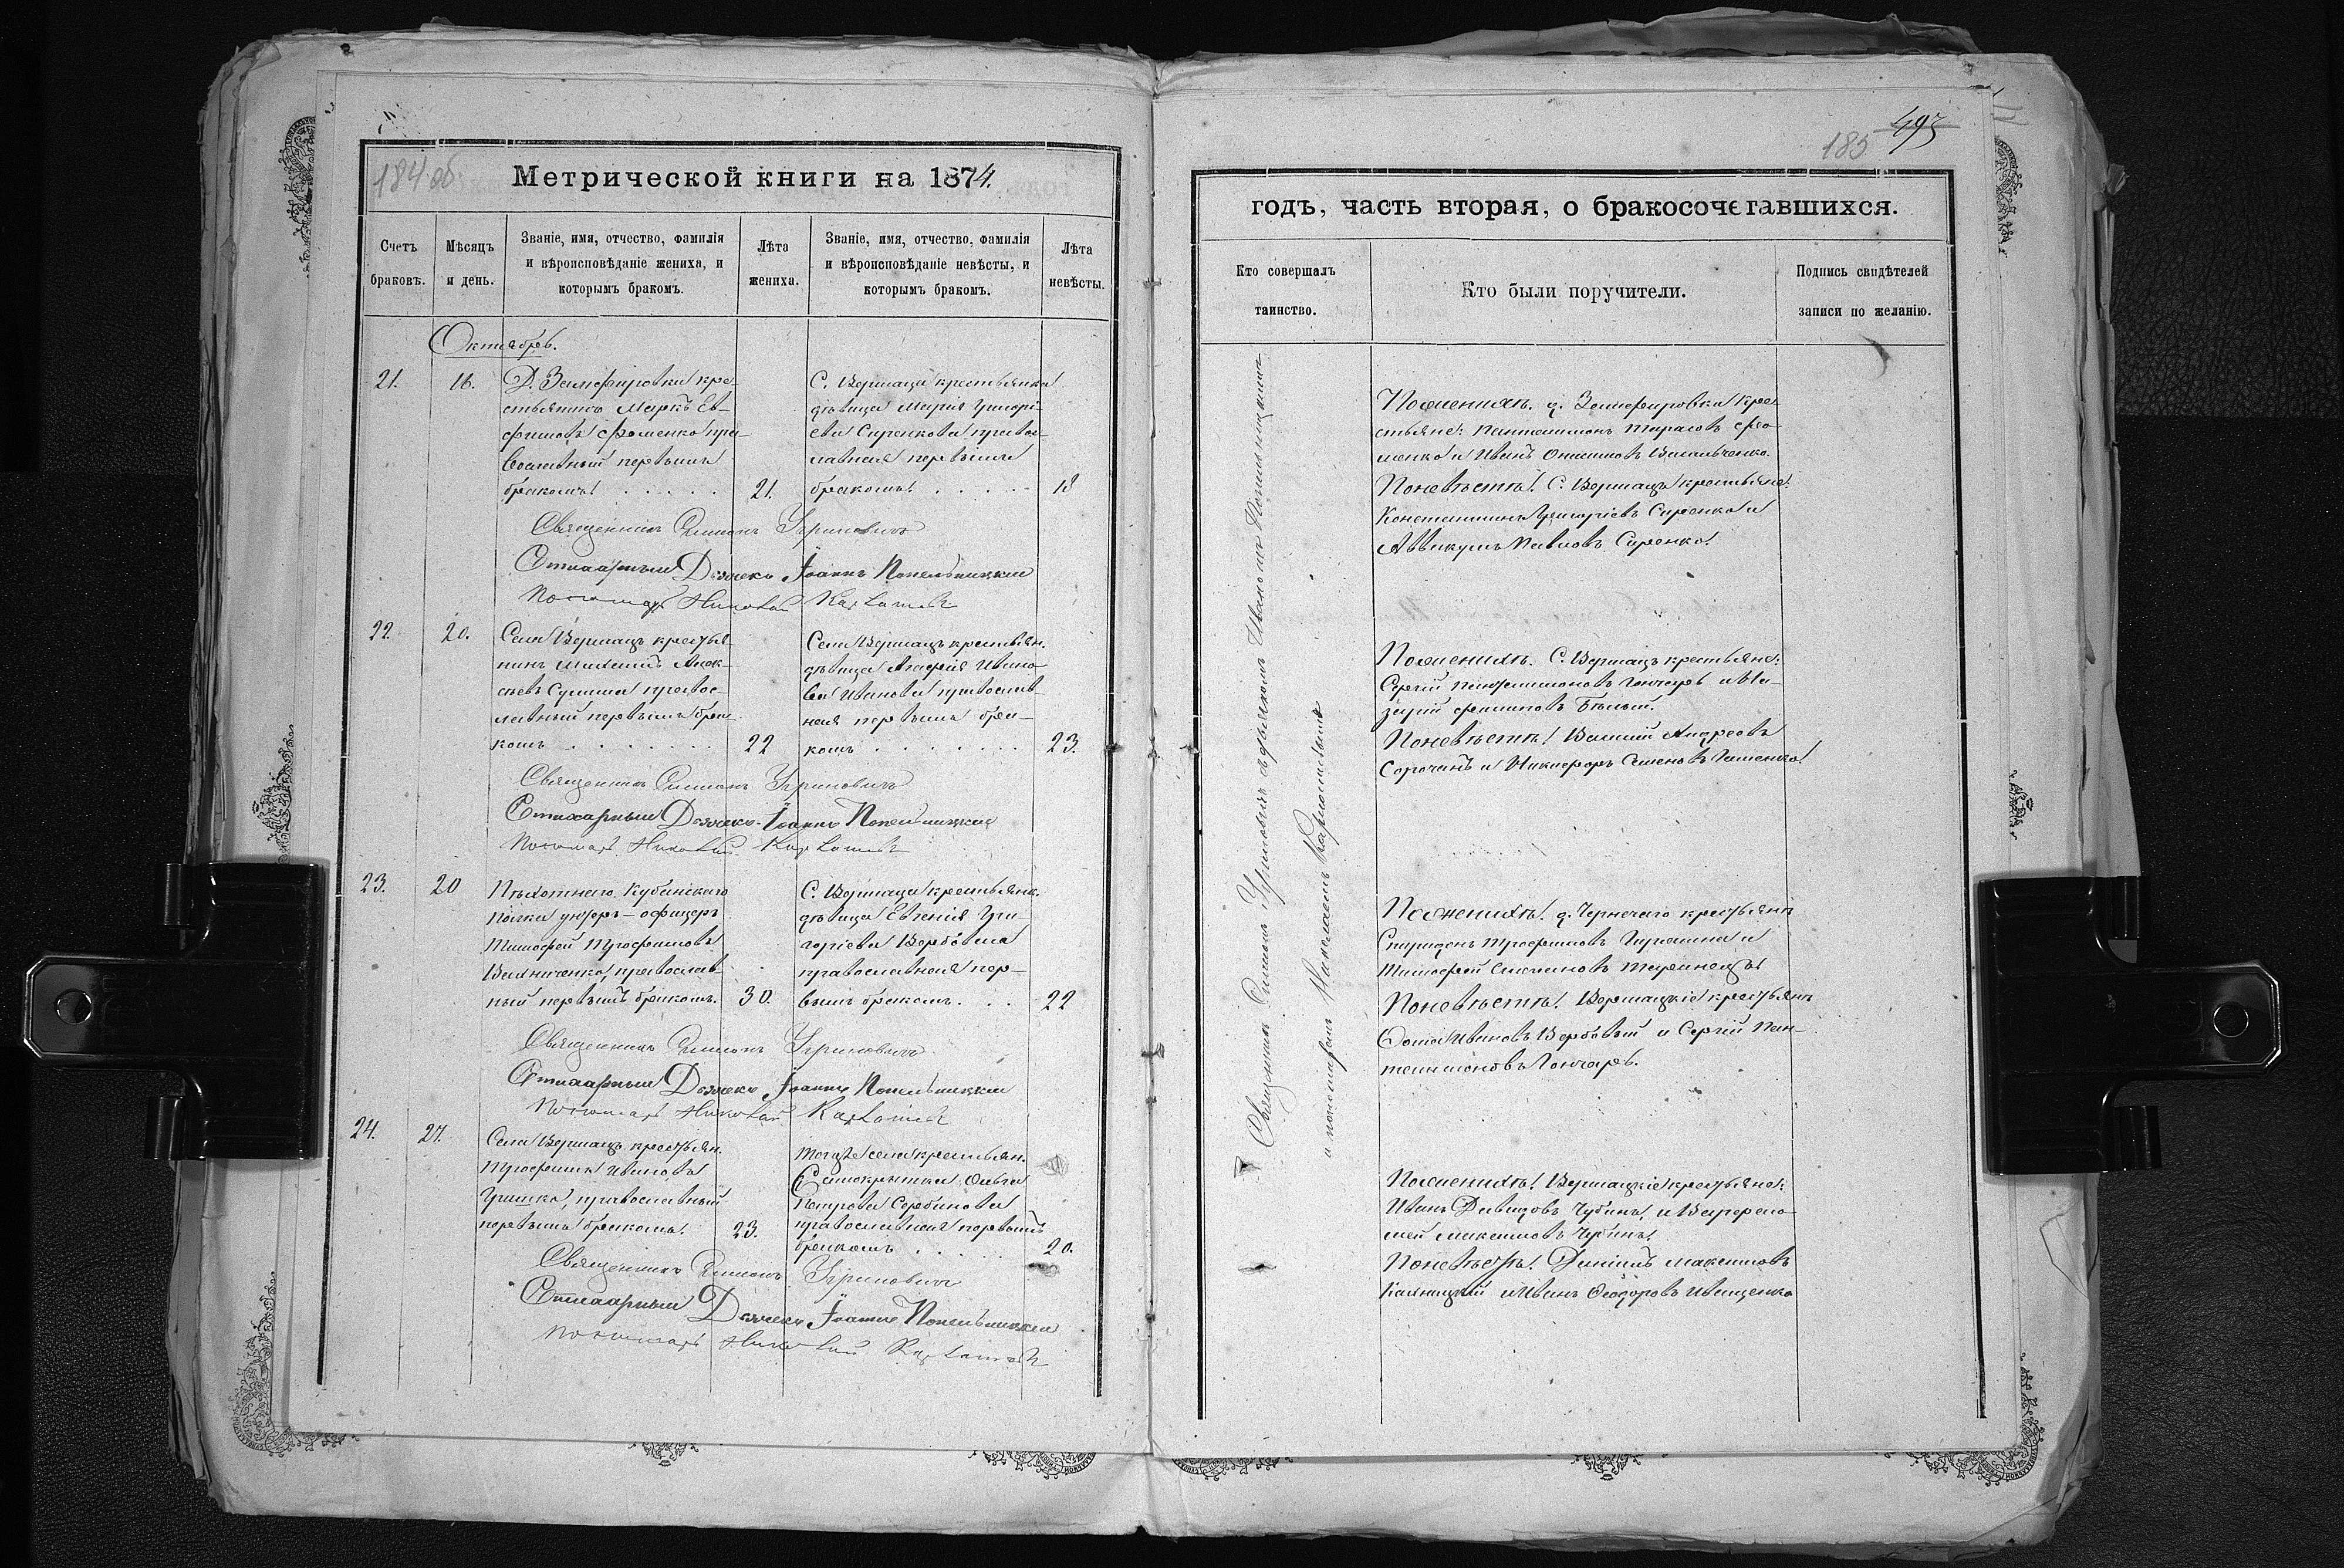 184 об.
Метрической книги на 1874.
Счетъ браковъ.
Мѣсяцъ и день.
Званіе, имя, отчество, фамилія
и вѣроисповѣданіе жениха, и
которымъ бракомъ.
Лѣта жениха.
Званіе, имя, отчество, фамилія
и вѣроисповѣданіе невѣсты, и
которымъ бракомъ.
Лѣта невѣсты.
Октябрь.
21.
16.
Д. Земфировки кре-
стьянинъ Маркъ Ев-
фимовъ Фоменко пра-
вославный первымъ
бракомъ
21.
С. Вершаца крестьянка
дѣвица Марія Григорі-
ева Сиренкова правос-
лавная первымъ
бракомъ
18
Священникъ Симеонъ Угриновичъ
Стихарный Дьячекъ Іоаннъ Попельницкій
Пономарь Николай
22.
20.
Села Вершацъ крестья-
нинъ Михаилъ Алек-
сѣевъ правос-
лавный первымъ бра-
комъ
22
Села Вершацъ крестьян.
дѣвица Агафія Ивано-
ва Иванова православ-
ная первымъ бра-
комъ
23.
Священникъ Симеонъ Угриновичъ
Стихарный Дьячекъ Іоаннъ Попельницкій
Пономарь Николай
23.
20
Пѣхотнаго Кубинскаго
полка унтеръ-офицеръ
Тимофей Трофимовъ
православ-
ный первымъ бракомъ.
30.
С. Вершаца крестьянк.
дѣвица Евгенія Гри-
горіева Вербовая
православная пер-
вымъ бракомъ.
22
Священникъ Симеонъ Угриновичъ
Стихарный Дьячекъ Іоаннъ Попельницкій
Пономарь Николай
24.
27.
Села Вершацъ крестьян.
Трофимъ Ивановъ
Гришко, православный
первымъ бракомъ.
23.
Тогоже села крестьян.
Ольга
Петрова Сербинова
православная первымъ
бракомъ
20.
Священникъ Симеонъ Угриновичъ
Стихарный Дьячекъ Іоаннъ Попельницкій
Пономарь Николай
185
495
годъ, часть вторая, о бракосочетавшихся.
Кто совершалъ таинство.
Кто были поручители.
Подпись свидѣтелей
записи по желанію.
Священникъ Симеонъ Угриновичъ съ дьячкомъ Иваномъ Попельницкимъ
и пономаремъ Николаемъ
По женихѣ. д. Земфировки кре-
стьяне: Пантелимонъ Тарасовъ Фо-
менко и Иванъ Онисимовъ
По невѣстѣ. С. Вершацъ крестьяне:
Константинъ Григоріевъ Сиренко и
Аввакумъ Павловъ Сиренко.
По женихѣ. С. Вершацъ крестьяне:
Сергій Пантелимоновъ Гончаръ и На-
зарій Филиповъ Бѣлый.
По невѣстѣ. Василій Андреевъ
Сорочанъ и Никифоръ Семеновъ
По женихѣ. д. Чернечаго крестьяне
Спиридонъ Трофимовъ и
Тимофей
По невѣстѣ. Вершацкіе крестьяне
Фома Ивановъ Вербовый и Сергій Пан-
телимоновъ Гончаръ.
По женихѣ. Вершацкіе крестьяне:
Иванъ Давидовъ Чубина и Варфоло-
мей Максимовъ Чубина.
По невѣстѣ. Даніилъ Максимовъ
Калницкій и Иванъ Ѳеодоровъ Иващенко